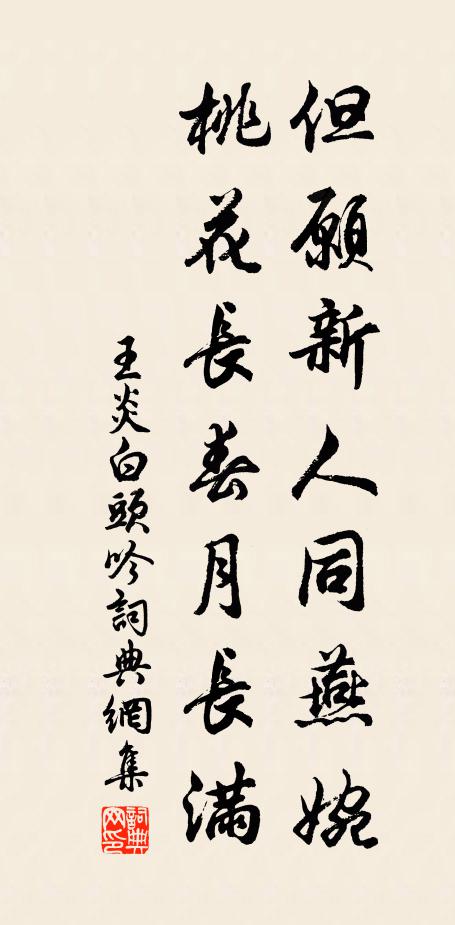 但願新人同燕婉
桃花長春月長滿
王炎白頭吟詞典網集
詞典
网印